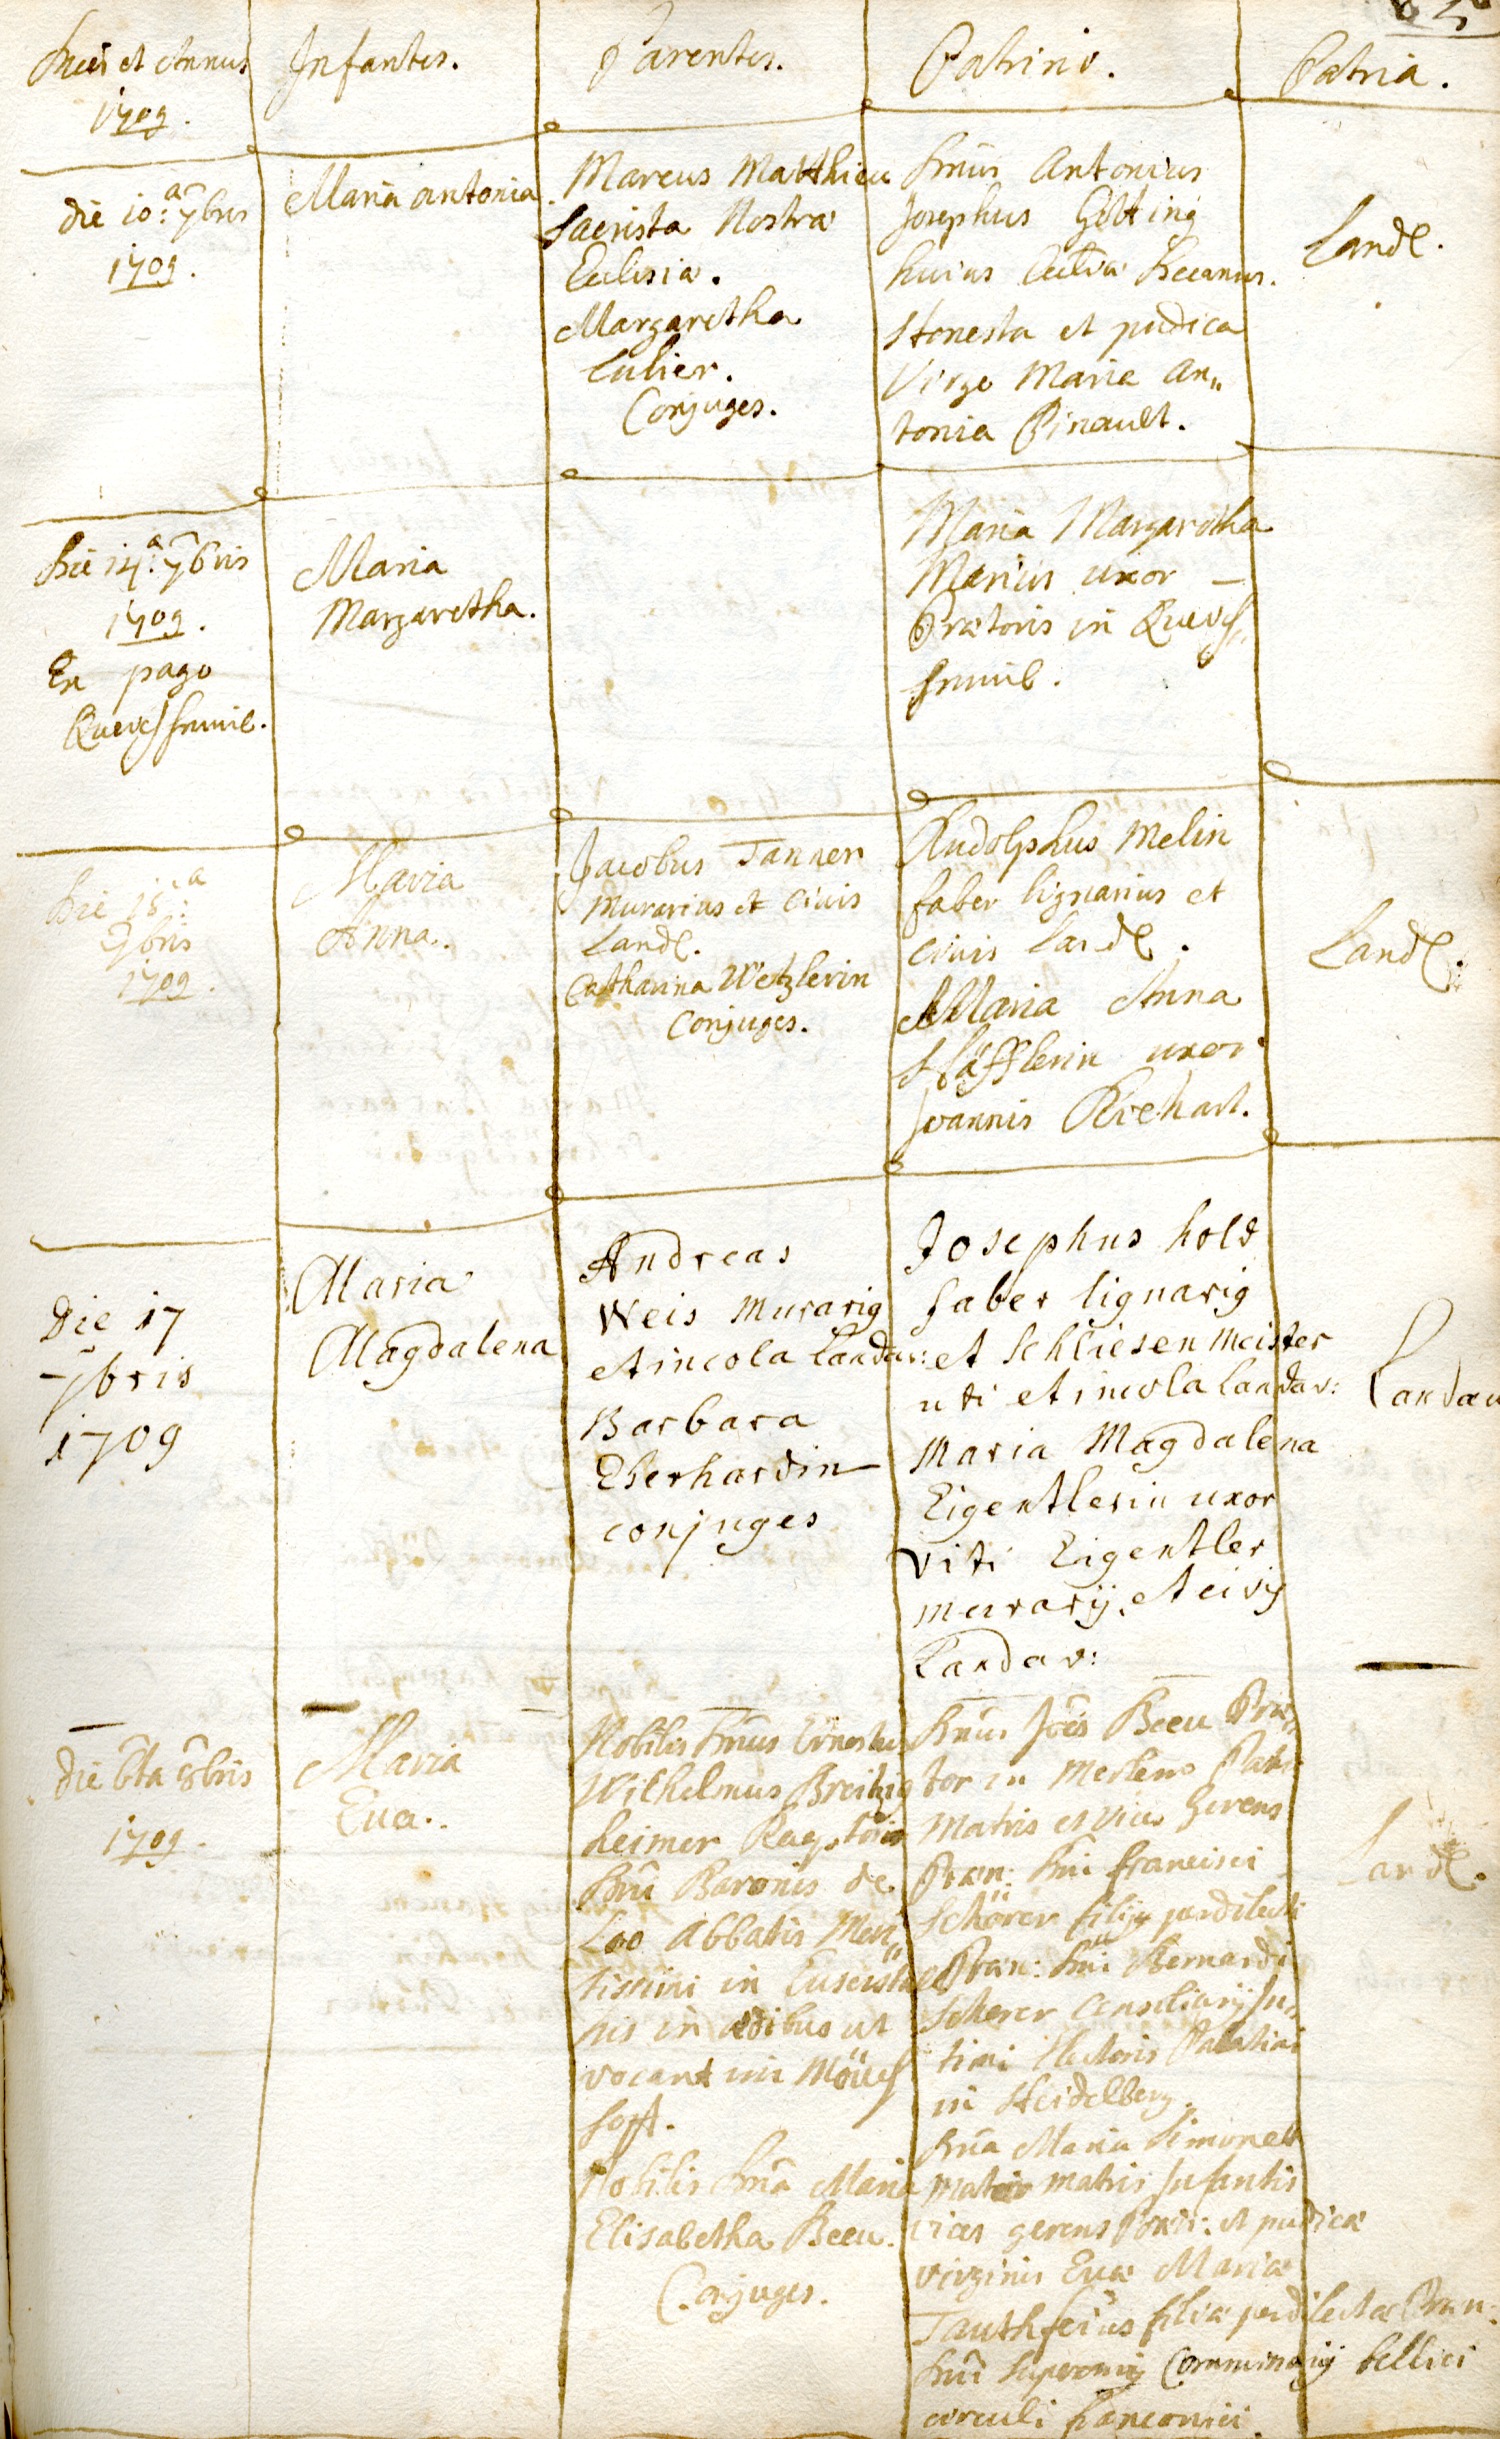 Dies et Annus
1709.
Infantes.
Parentes.
Patrini.
Patria.
die 10:ᵃ 7bris
1709.
Maria antonia.
Marcus Matthieu
Sacrista Nostræ
Eclesiæ.
Margaretha
Culier.
Conjuges.
Dnus Antonius
Josephus Götting
huius Decanus.
Honesta et pudica
Virgo Maria An„
tonia Pinault.
Landℓ.
Die 14:ᵃ 7bris
1709.
Ex pago
Maria
Margaretha.
Maria Margaretha
uxor —
Prætoris in
Die 15:ᵃ
7bris
1709.
Maria
Anna.
Jacobus Tanner
Murarius et Civis
Landℓ.
Catharina Wetzlerin
Conjuges.
Rudolphus Melin
faber lignarius et
civis Landℓ.
Maria Anna
uxor
Joannis
Landℓ.
Die 17
7bris
1709
Maria
Magdalena
Andreas
Weis Murarig
et incola Landav:
Barbara
Eberhardin
conjuges
Josephus hold
faber lignarig
et Schliesen meister
uti et incola Landav:
Maria Magdalena
Eigentlerin uxor
viti Eigentler
murarij et civis
Landav:
Landau
die 6ta 8bris
1709.
Maria
Eva.
Nobilis Dnus Ernestus
Wilhelmus
heimer
Dni Baronis de
Loo Abbatis
in
in ædibus ut
vocant im
hofft.
Nobilis Dna Maria
Elisabetha Beeu.
Conjuges.
Dnus Joes Beeu Præ„
tor in
Matris et vices gerens
Præn: Dni Francisci
Scherer filij perdilecti
Præn: Dni Bernardi
Scherer Consiliarij In„
timi Electoris Palatini
in Heidelberg.
Dna Maria Simonet
mater matris Infantis
vices gerens: et pudicæ
virginis Evæ Mariæ
filiæ perdilectæ Præn:
Dni Supremi Commissarij bellici
circuli Franconici.
Landℓ.